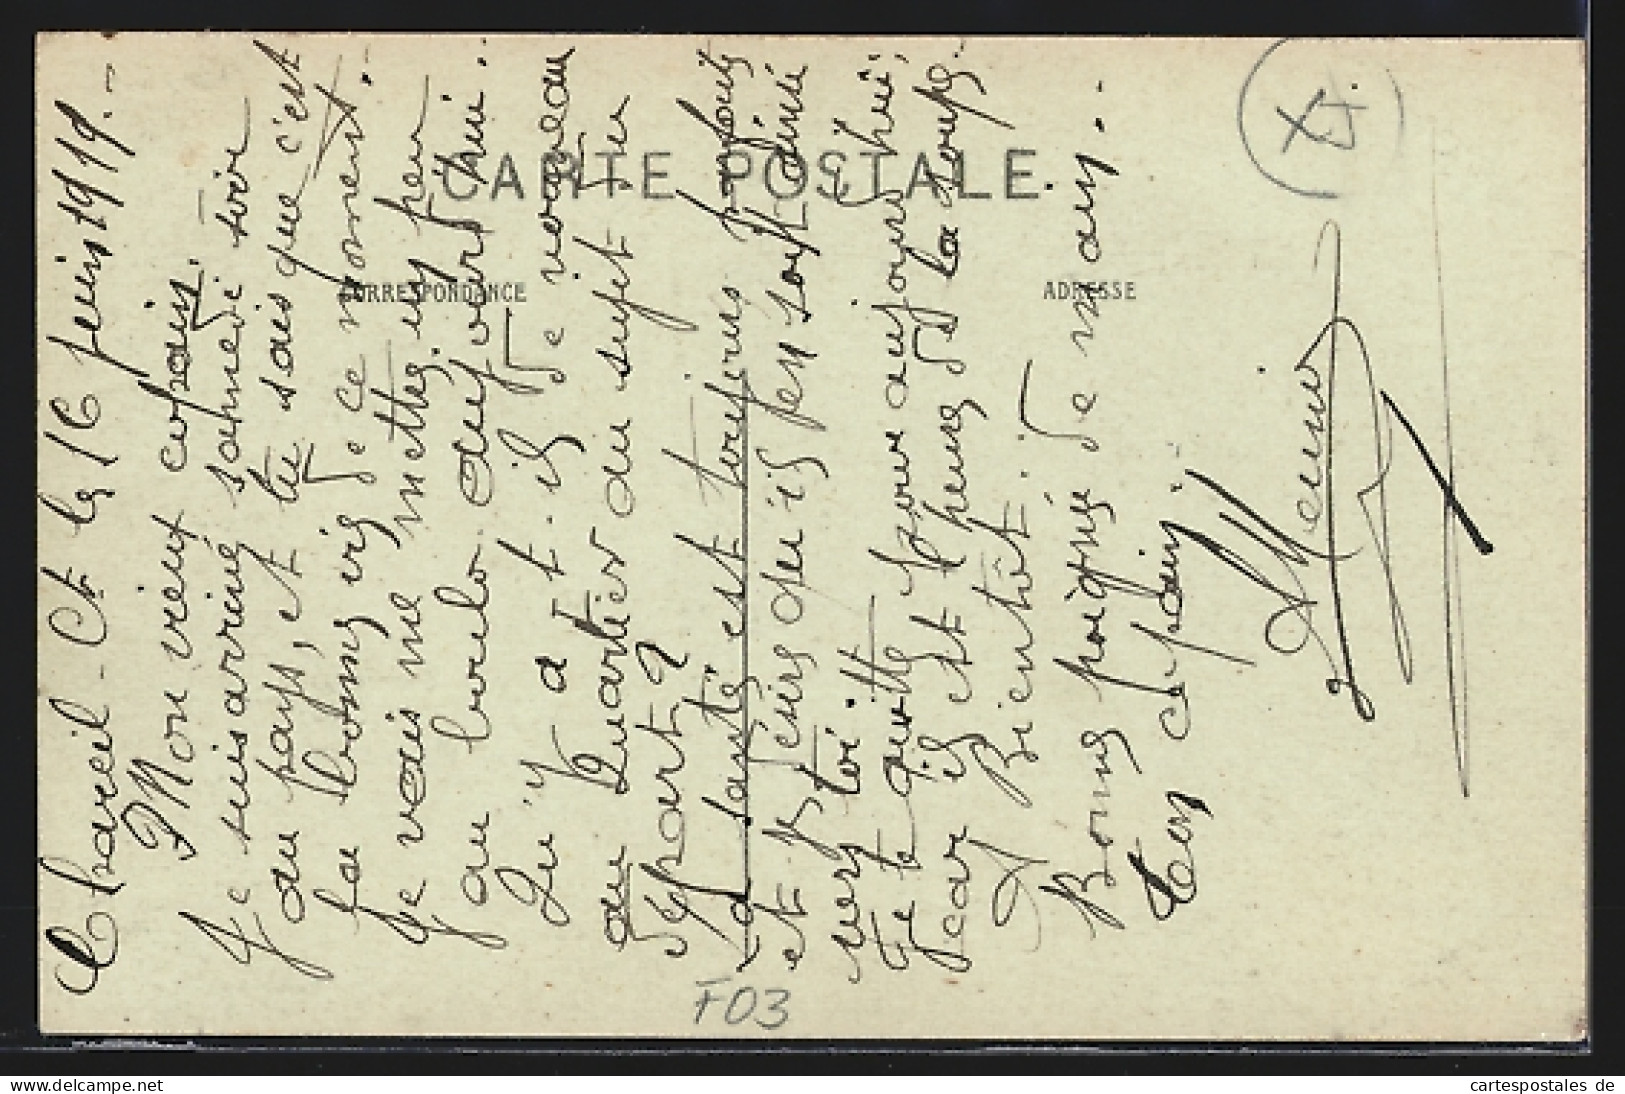 Chareil-Ct le 16 juin 1919.-
Mon vieux copain.
Je suis arrivé samedi soir
au pays, et tu sais que c'est
la bonne vie de ce moment.-
Je vais me mettre un peu
au boulot aujourd'hui.
Qu'y a t. il de nouveau
au Quartier au sujet du
départ?
La santé est toujours
et je
vers toi.
Je te quitte pour aujourd'hui,
car il est l'heure de la soupe.-
A Bientôt.
Bonne poignée de main.-
Ton copain.
CARTE POSTALE
CORRESPONDANCE
ADRESSE
F03
www.delcampe.net
cartespostales de